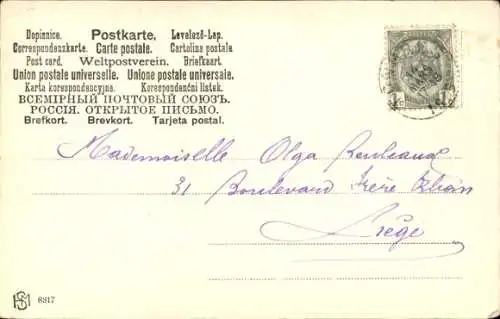 Dopisnice. Postkarte, Levelező-Lap.
Correspondenzkarte. Carte postale. Cartolina postale
Post card. Weltpostverein. Briefkaart.
Union postale universelle. Unione postale universale.
Karta korespondencyjna. Korespondenční listek.
ВСЕМІРНЫЙ ПОЧТОВЫЙ СОЮЗЪ.
РОССІЯ. ОТКРЫТОЕ ПИСЬМО.
Brefkort. Brevkort. Tarjeta postal.
Mademoiselle Olga
31 Boulevard Frère Orban
Liège
6817